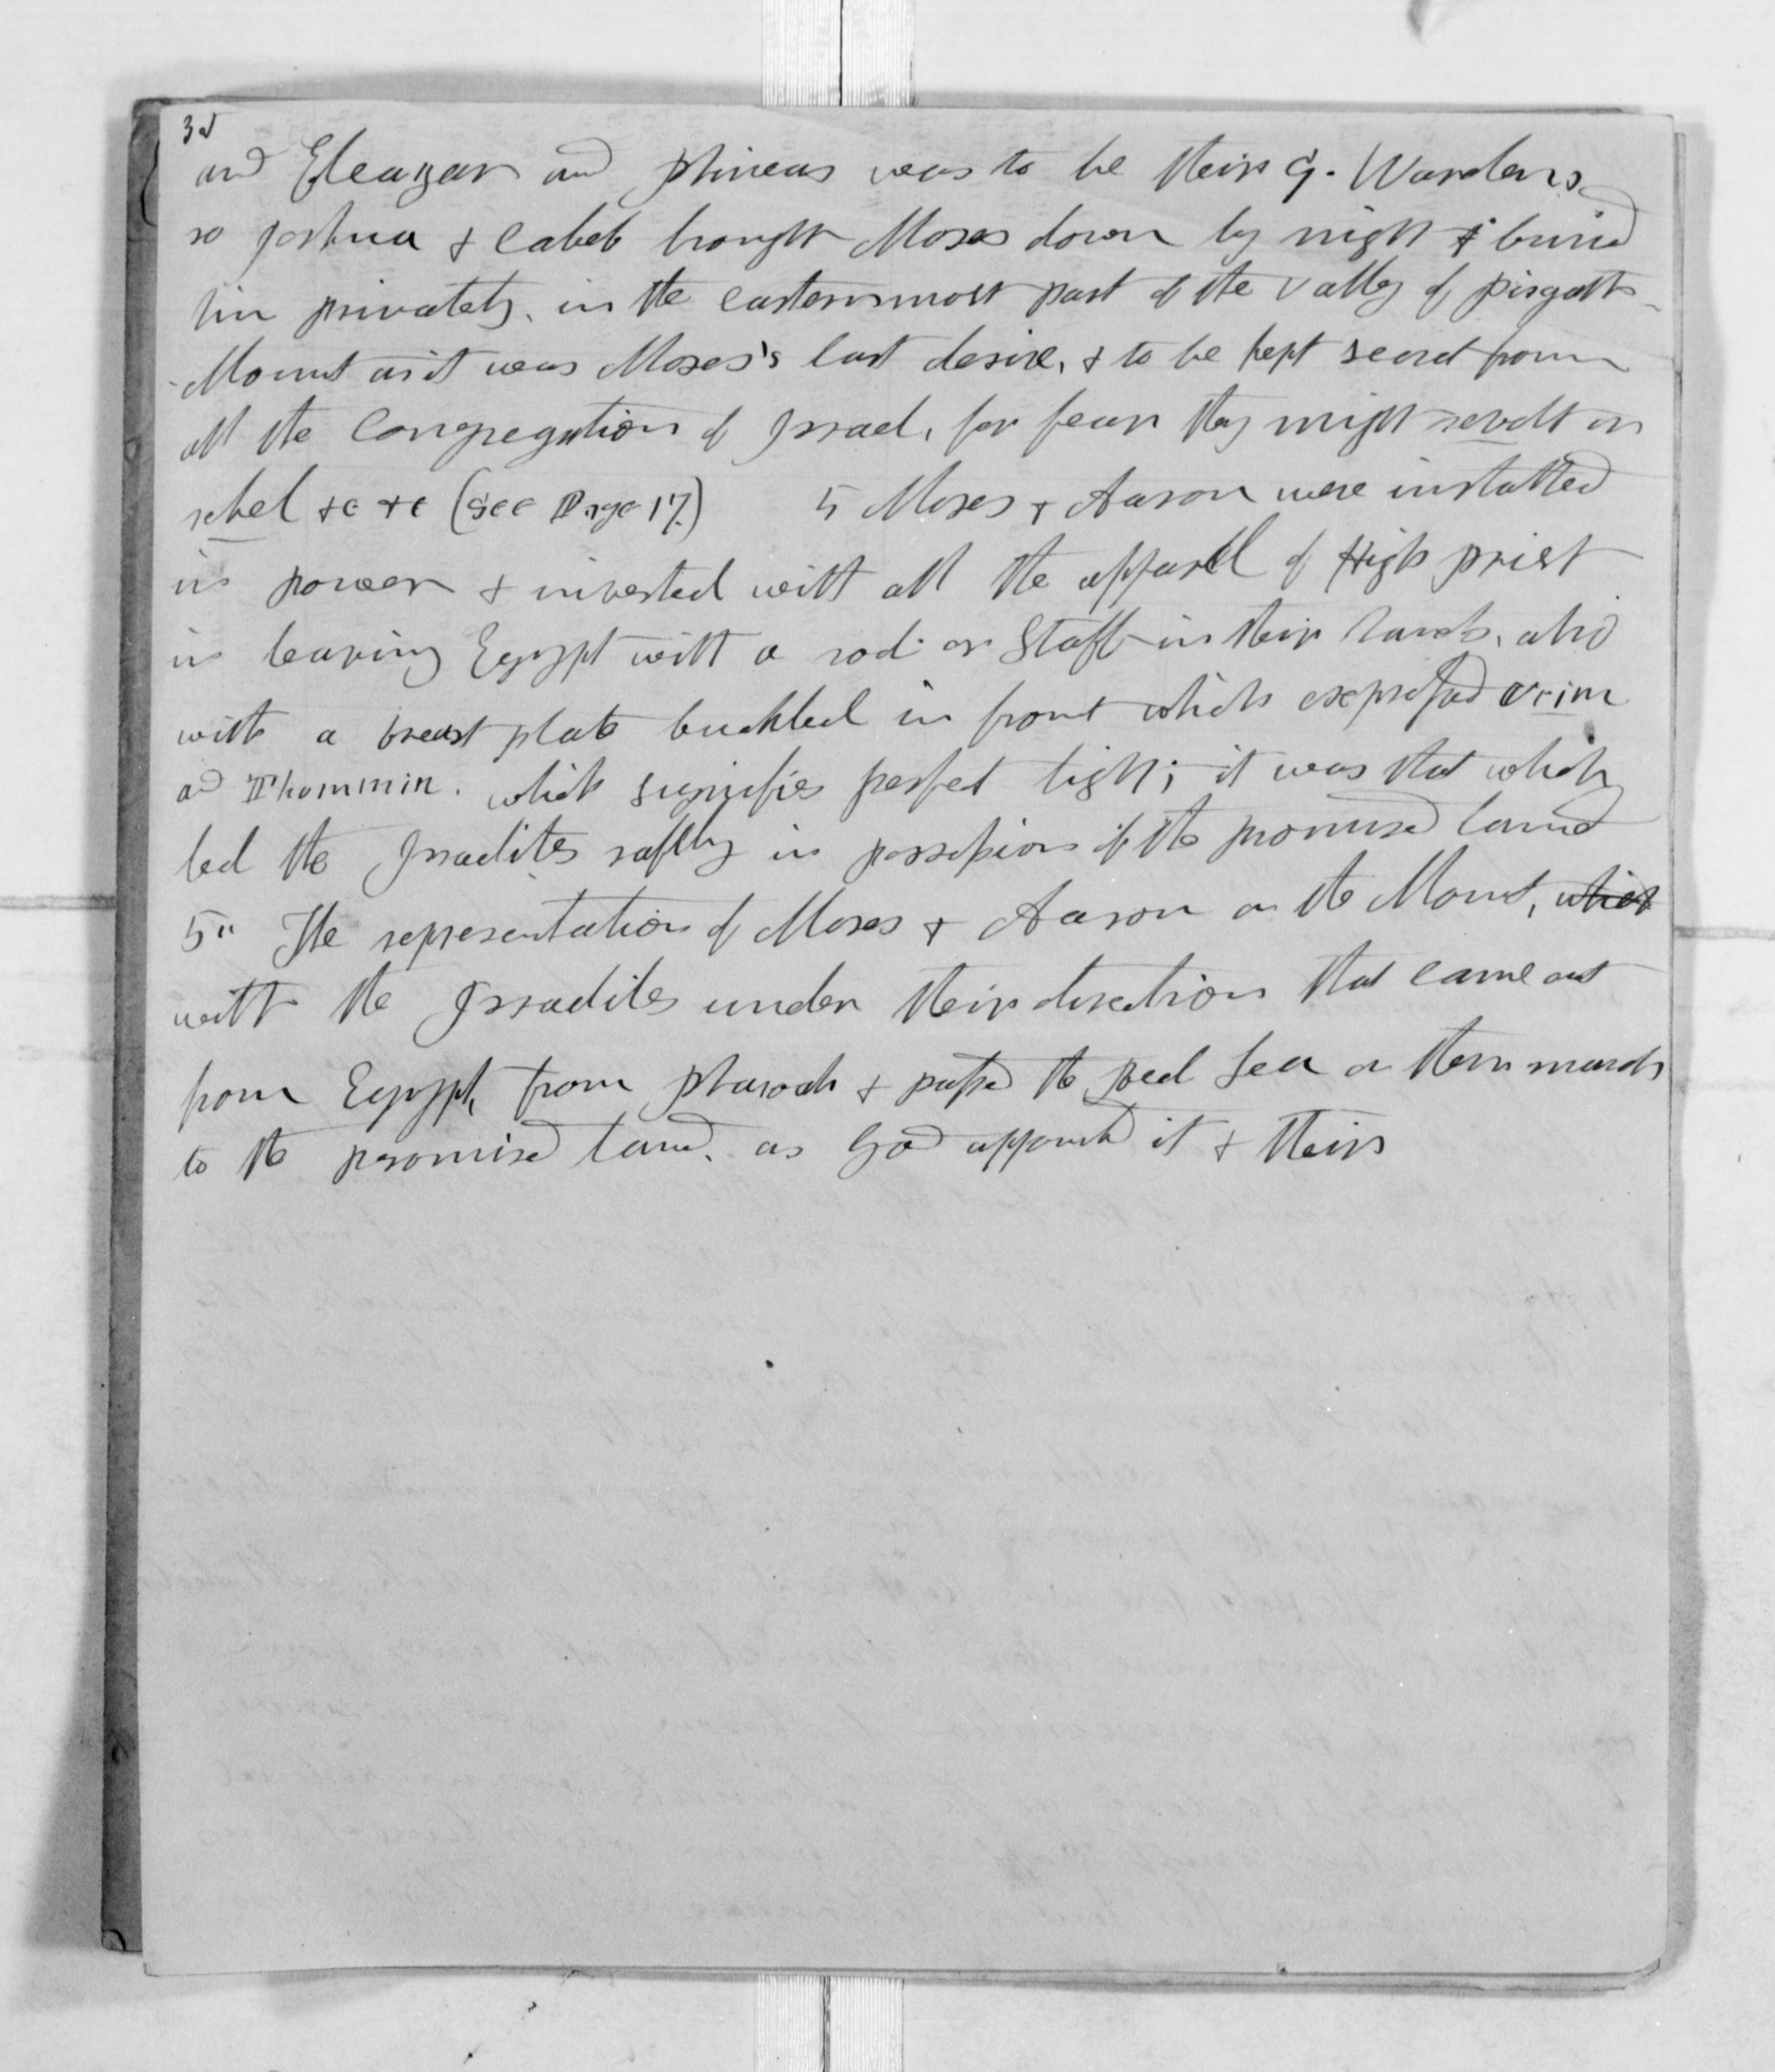 3d
and Eleazar and phineas was to be their G. Wardens
so Joshua & Caleb brought Moses down by night & buried
him privately. in the easternmost part of the Valley of pisgath
Mount as it was Moses's last desire, & to be kept secret from
all the Congregation of Israel, for fear they might revolt or
rebel &c &c (See Page 17.) 5 Moses & Aaron were installed
in power & invested with all the apparell of High priest
in leaving Egypt with a rod or Staff in their hands, also
with a breast plate buckled in front which expressed Urim
and Thummin. which signifies perfect light; it was that which
led the Israelites saftly in possession of the promised land
5" The representation of Moses & Aaron on the Mount, which
with the Israelites under their direction that came out
from Egypt, from pharoah & passed the red Sea on them march
to the promised land. as God appointed it & their